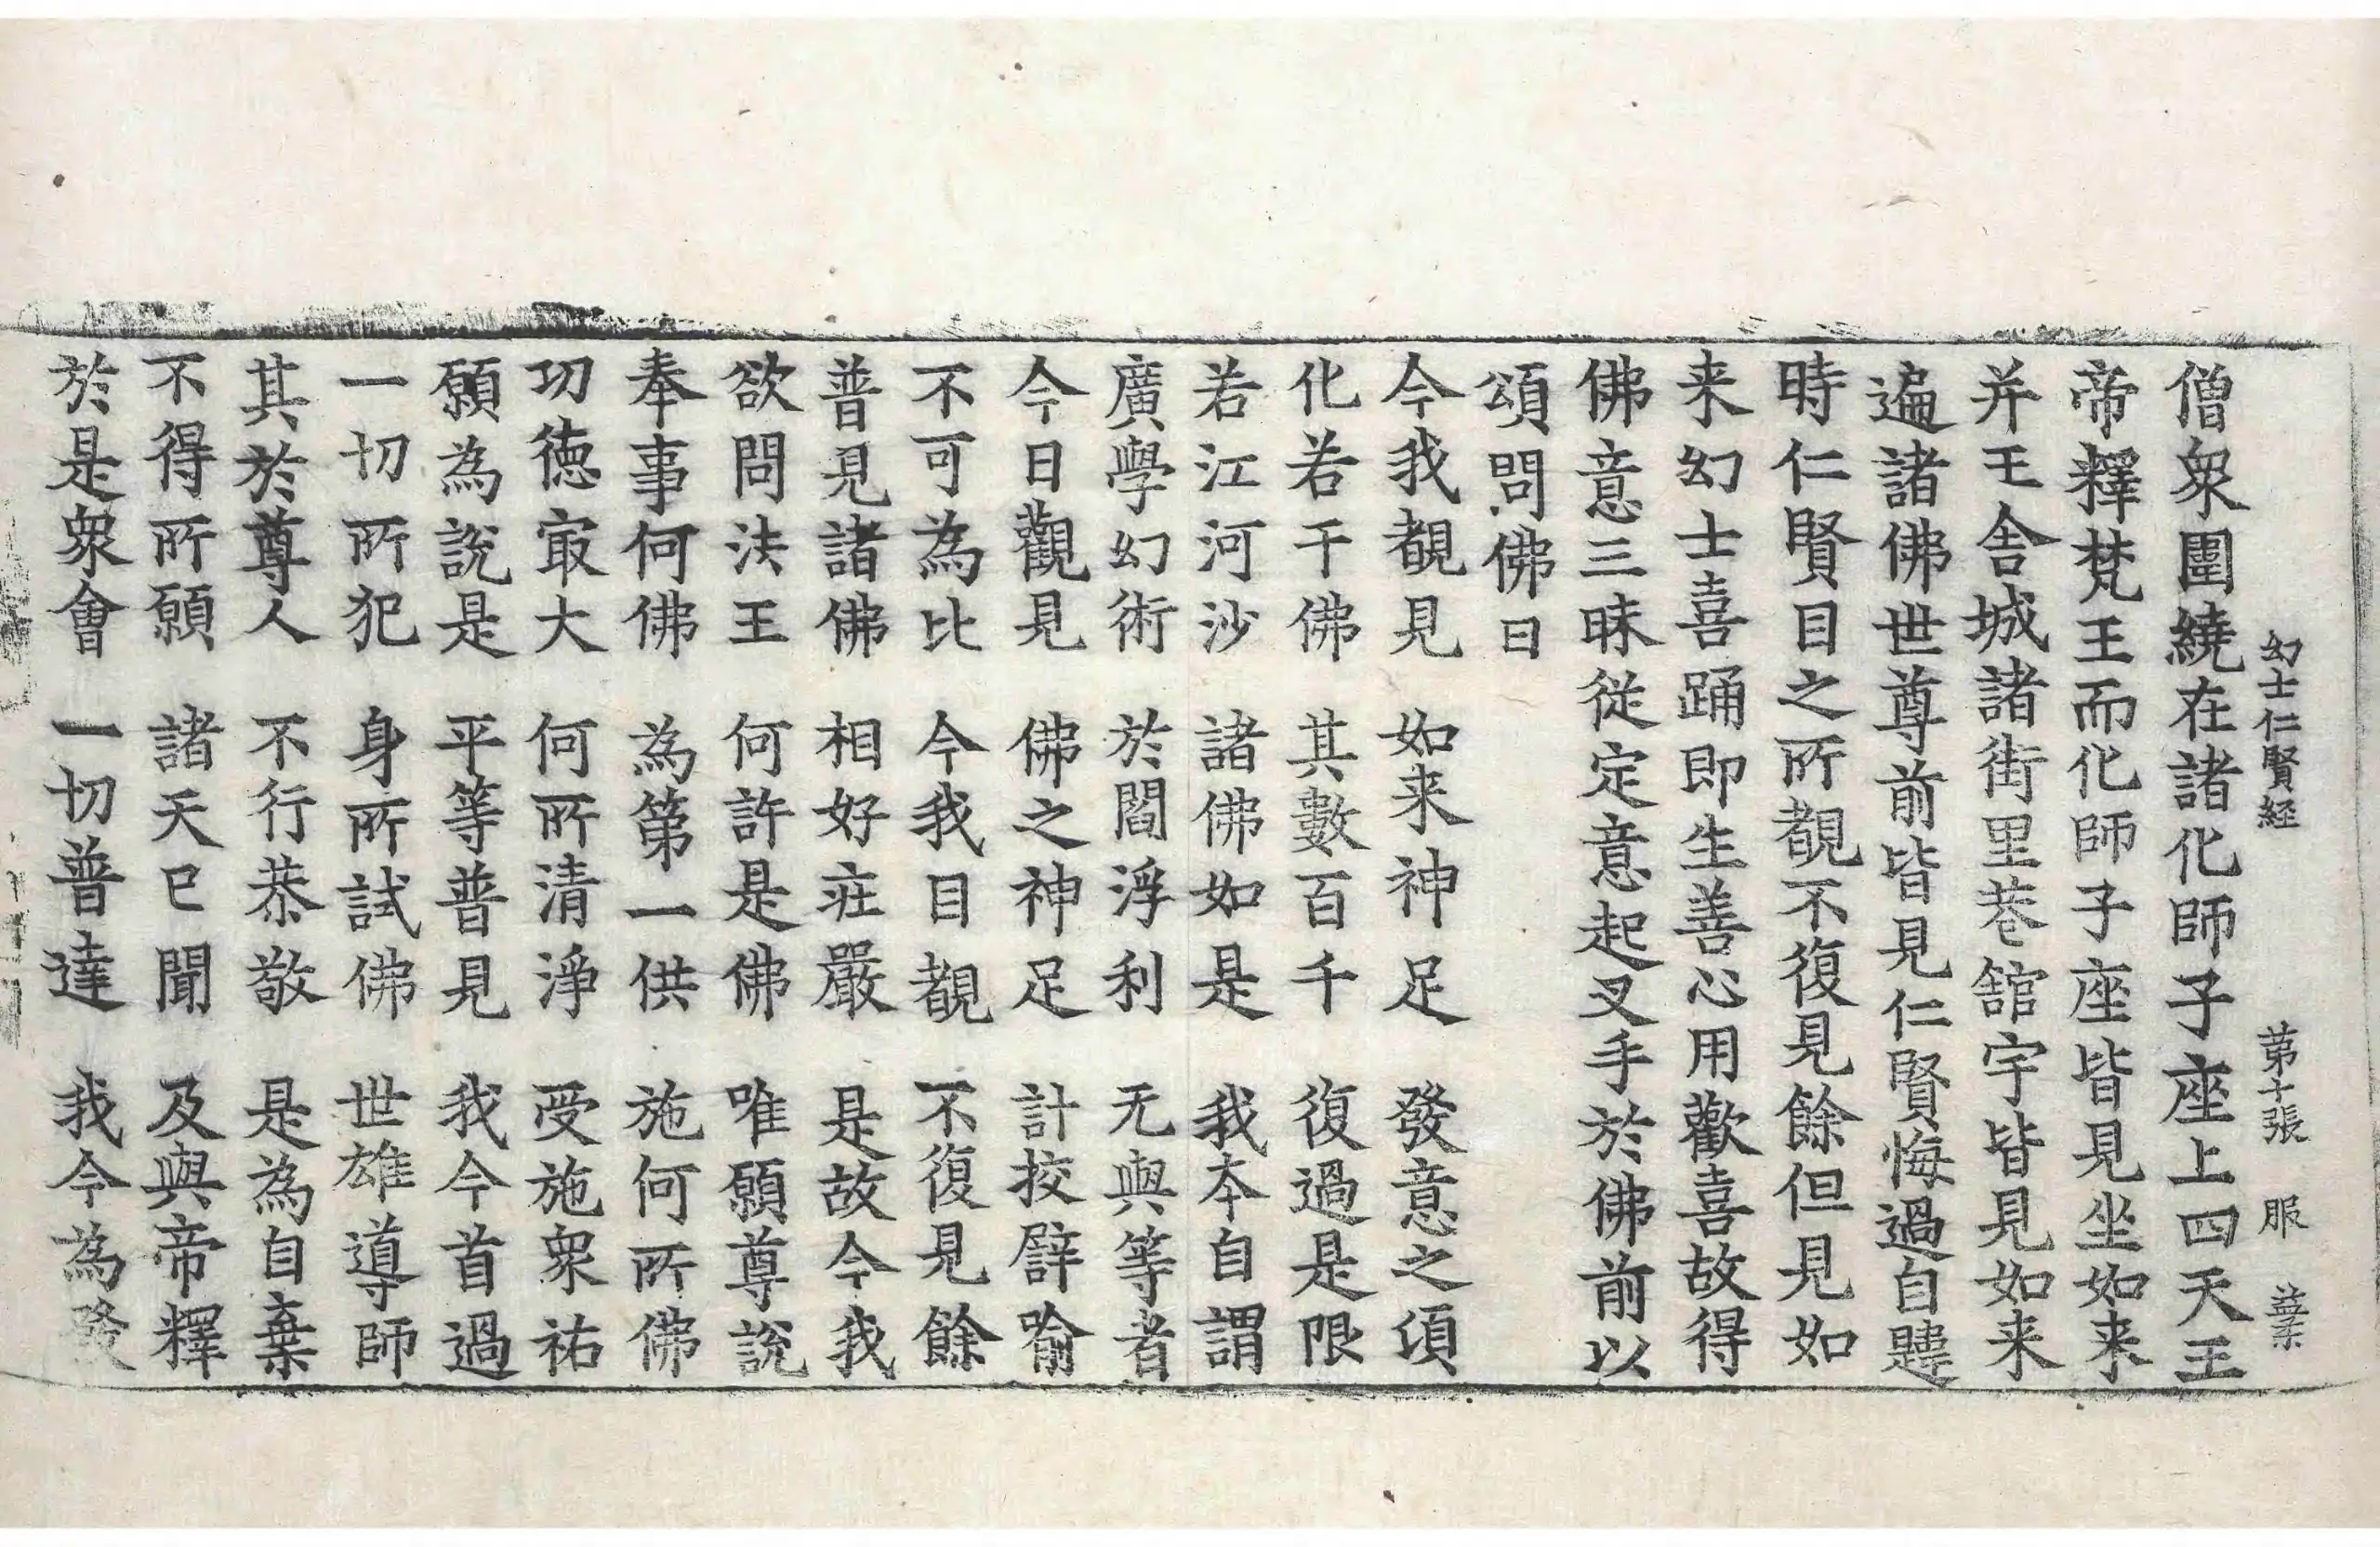 幻士仁賢経 苐十張 服
僧衆圍繞在諸化師子座上四天王
帝釋梵王而化師子座皆見坐如来
并王舎城諸街里巷舘宇皆見如来
遍諸佛世尊前皆見仁賢悔過自韙
時仁賢目之所覩不復見餘但見如
来幻士喜踊即生善心用歡喜故得
佛意三昧従定意起叉手於佛前以
頌問佛曰
今我覩見 如来神足 發意之湏
化若干佛 其數百千 復過是限
若江河沙 諸佛如是 我夲自謂
廣學幻術 於閻浮利 无與等者
今日觀見 佛之神足 計挍辟喻
不可為比 今我目覩 不復見餘
普見諸佛 相好庄嚴 是故今我
欲問法王 何許是佛 唯願尊說
奉事何佛 為第一供 施何所佛
功徳㝡大 何所清淨 受施衆祐
願為說是 平等普見 我今首過
一切所犯 身所試佛 世雄導師
其於尊人 不行恭敬 是為自棄
不得所願 諸天已聞 及與帝釋
於是衆會 一切普達 我今為發